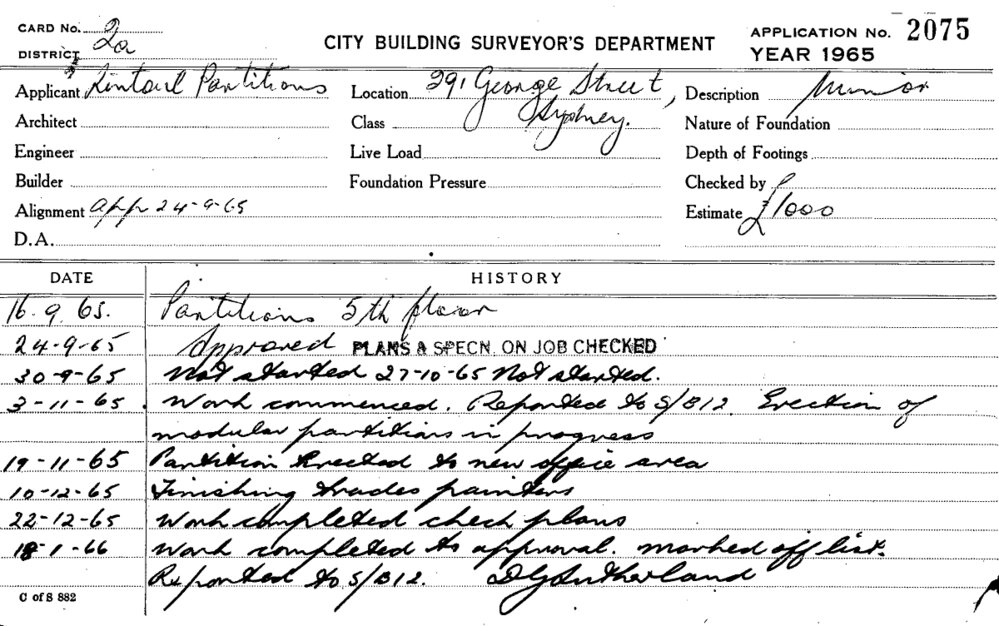 CARD No. 2a
DISTRICT
CITY BUILDING SURVEYOR'S DEPARTMENT
APPLICATION No. 2075
YEAR 1965
Applicant Rintoul Partitions
Location 291 George Street, Sydney.
Description Minor
Architect
Class
Nature of Foundation
Engineer
Live Load
Depth of Footings
Builder
Foundation Pressure
Checked by
Alignment app 24-9-65
Estimate £1000
D.A.
DATE HISTORY
16.9.65. Partitions 5th floor
24-9-65 Approved PLANS & SPECN. ON JOB CHECKED
30-9-65 Not started 27-10-65 Not started.
3-11-65. Work commenced. Reported to S/B12. Erection of
modular partitions in progress
19-11-65 Partition Erected to new office area
10-12-65 Finishing trades painters
22-12-65 Work completed check plans
18-1-66 Work completed to approval. marked off list.
Reported to S/B12. DGSutherland
C of S 882